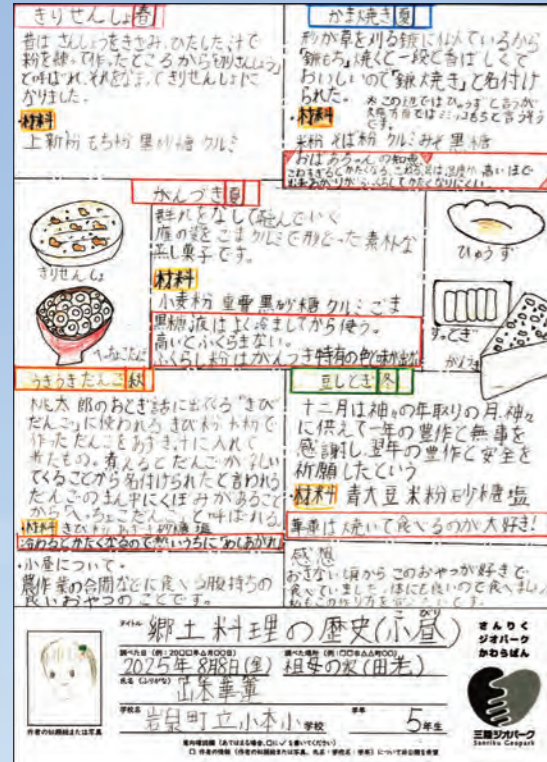 きりせんしょ 春
昔は さんしょうをきざみ、ひたした汁で
粉を練って作ったところから「切さんしょう」
と呼ばれ、それをなまってきりせんしょに
なりました。
・材料
上新粉 もち粉 黒砂糖 クルミ
かま焼き 夏
形が草を刈る鎌に似ているから
「鎌もち」焼くと一段と香ばしくて
おいしいので「鎌焼き」と名付け
られた。
※この辺ではひゅうずと言うが
です。
・材料
米粉 そば粉 クルミ みそ 黒糖
おばあちゃんの知恵
がんづき 夏
群れをなして飛んでいく
雁の姿をごまクルミで形どった素朴な
蒸し菓子です。
材料
小麦粉 重曹 黒砂糖 クルミ ごま
黒糖液はよく冷ましてから使う。
高いとふくらまない。
ふくらし粉はがんづき特有の色と味が出ない
きりせんしょ
へっちょこだんご
ひゅうず
すっとぎ
がんづき
うきうきだんご 秋
桃太郎のおとぎ話に出てくる"きび
だんご"に使われるきび粉 米粉で
作っただんごをあずき汁に入れて
煮たもの。煮えるとだんごが浮い
てくることから名付けられたと言われる
だんごのまん中にくぼみがあること
から へっちょこだんごと呼ばれる
・材料 きび粉 あずき 砂糖 塩
冷めるとかたくなるので熱いうちにめしあがれ
豆しとぎ 冬
十二月は神々の年取りの月、神々
に供えて一年の豊作と無事を
感謝し、翌年の豊作と安全を
祈願したという
・材料 青大豆 米粉 砂糖 塩
華蓮は焼いて食べるのが大好き!
・小昼について・
農作業の合間などに食べる腹持ちの
良いおやつのことです。
感想
おさない頃からこのおやつが好きで
タイトル 郷土料理の歴史(小昼)
こびり
調べた日(例:20○○年△月○○日)
2025年 8月8日(金)
調べた場所(例:○○市△△町○○)
祖母の家(田老)
氏名(ふりがな)
山本華蓮
学校名
岩泉町立小本小 学校
学年
5年生
作者の似顔絵または写真
意向確認欄(あてはまる場合、□に✓を書いてください)
□ 作者の情報(作者の似顔絵または写真、氏名・学校名・学年)について非公開を希望
さんりく
ジオパーク
かわらばん
三陸ジオパーク
Sanriku Geopark